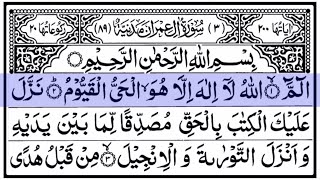 اٰیاتها ٢٠٠ (٣) سُوْرَةُ اٰلِ عِمْرٰنَ مَدَنِيَّةٌ (٨٩) رکوعاتها ٢٠
بِسْمِ اللّٰهِ الرَّحْمٰنِ الرَّحِيْمِ
الٓمّٓ ۝١ اللّٰهُ لَآ اِلٰهَ اِلَّا هُوَ ۙ الْحَیُّ الْقَیُّوْمُ ۝٢ نَزَّلَ
عَلَیْكَ الْكِتٰبَ بِالْحَقِّ مُصَدِّقًا لِّمَا بَیْنَ یَدَیْهِ
وَ اَنْزَلَ التَّوْرٰىةَ وَ الْاِنْجِیْلَ ۝٣ مِنْ قَبْلُ هُدًی